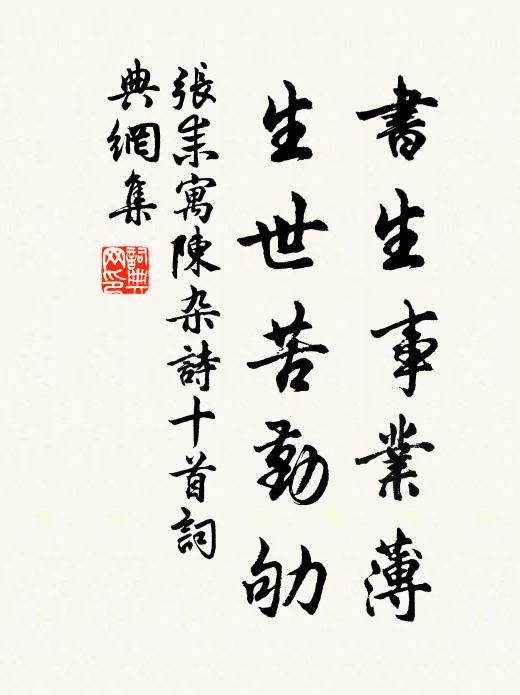 書生事業薄
生世苦勤劬
張耒寓陳杂詩十首詞
典網集
詞典
网印